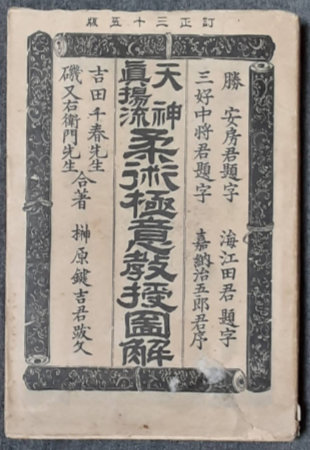 訂正三十五版
勝 安房君題字 海江田君題字
三好中将君題字 嘉納治五郎君序
天神
眞揚流
柔術極意教授圖解
吉田千春先生
磯又右衛門先生
合著 榊原鍵吉君跋文